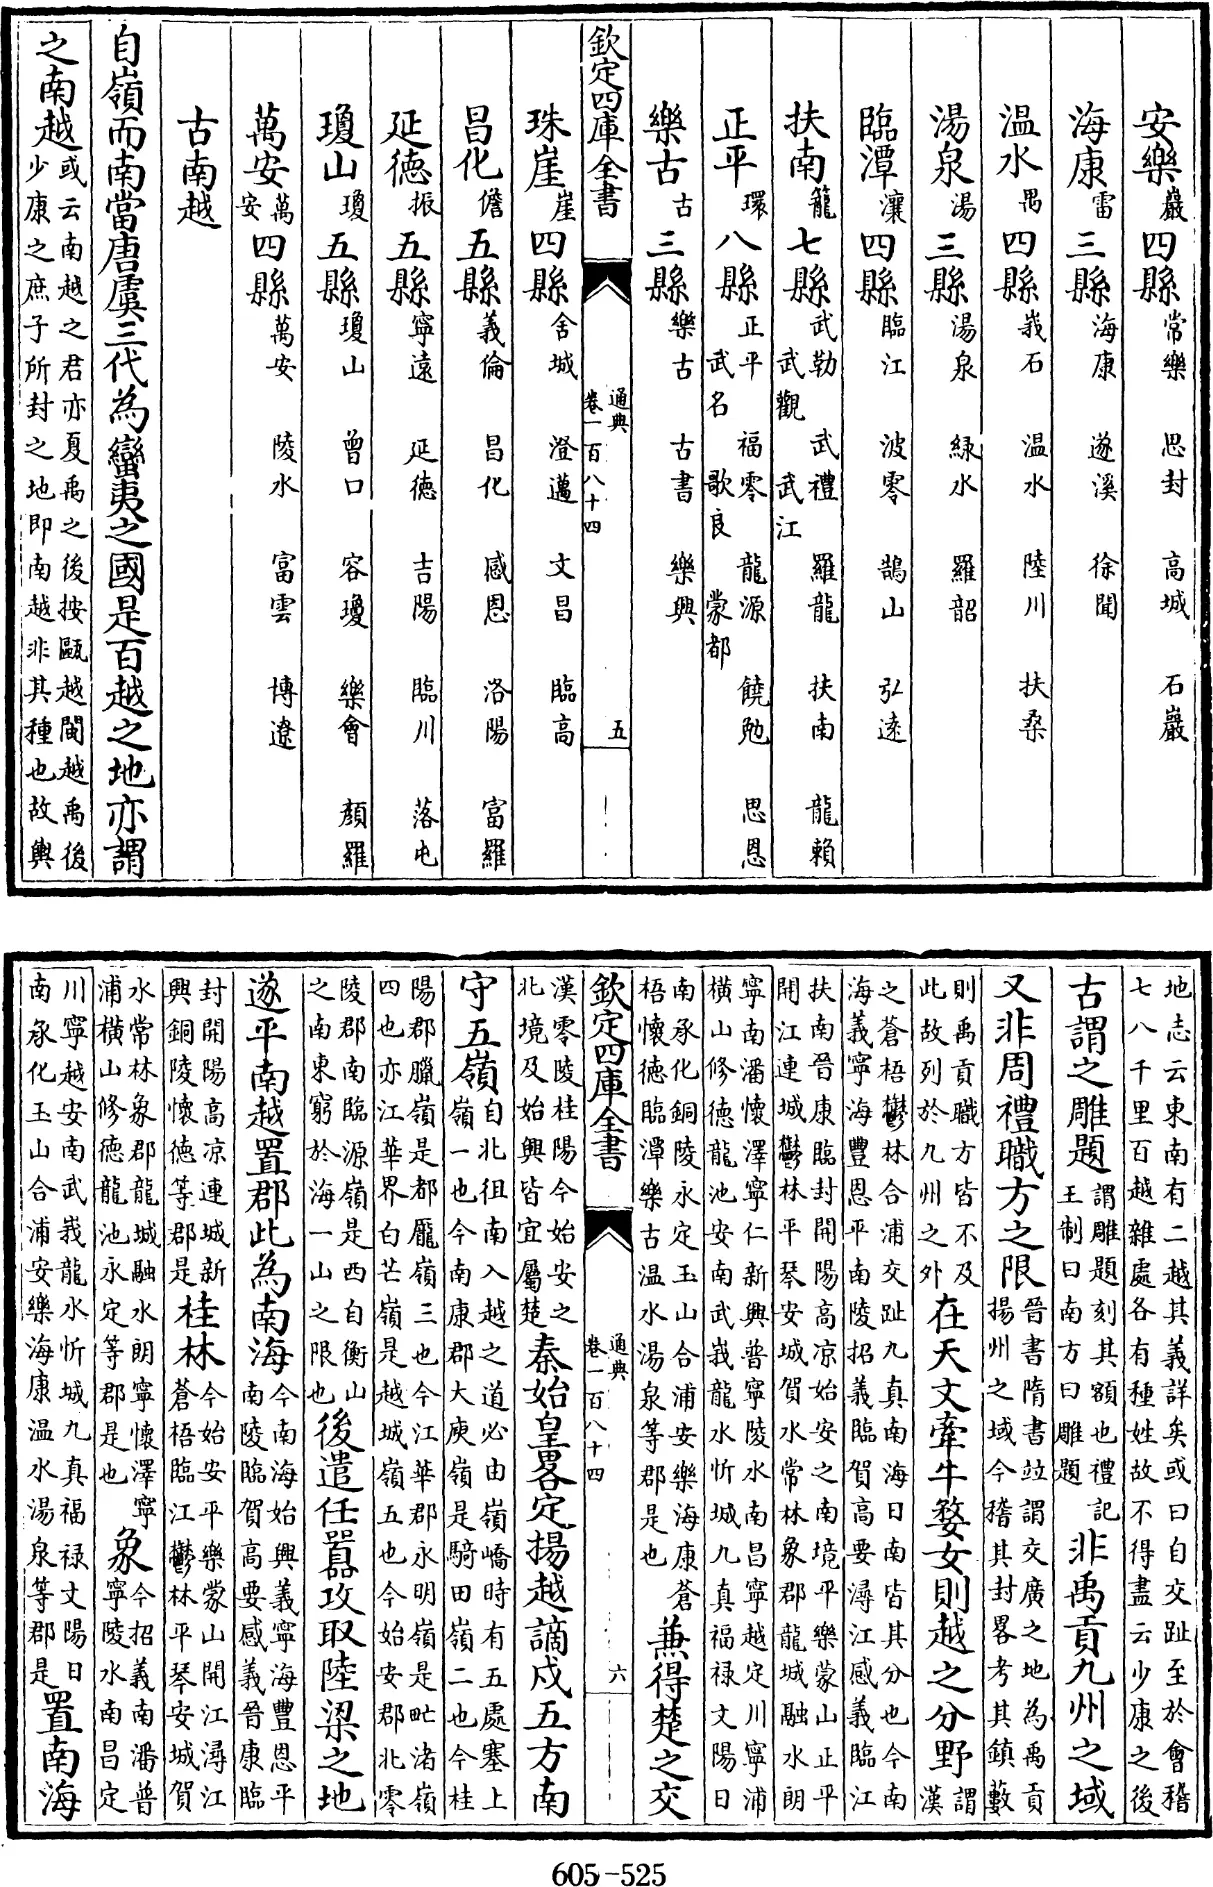 安樂巖四縣常樂 思封 高城 石巖
海康雷三縣海康 遂溪 徐聞
温水禺四縣峩石 温水 陸川 扶桑
湯泉湯三縣湯泉 緑水 羅韶
臨潭瀼四縣臨江 波零 鵠山 弘逺
扶南籠七縣武勒 武禮 羅龍 扶南 龍賴 武觀 武江
正平環八縣正平 福零 龍源 饒勉 思恩 武名 歌良 蒙都
樂古古三縣樂古 古書 樂興
欽定四庫全書 通典 卷一百八十四 五
珠崖崖四縣舍城 澄邁 文昌 臨高
昌化儋五縣義倫 昌化 感恩 洛陽 富羅
延德振五縣寧遠 延德 吉陽 臨川 落屯
瓊山瓊五縣瓊山 曾口 容瓊 樂會 顏羅
萬安萬安四縣萬安 陵水 富雲 博遼
古南越
自嶺而南當唐虞三代為蠻夷之國是百越之地亦謂
之南越或云南越之君亦夏禹之後按甌越閩越禹後少康之庶子所封之地即南越非其種也故輿
地志云東南有二越其義詳矣或曰自交趾至於會稽七八千里百越雜處各有種姓故不得盡云少康之後
古謂之雕題謂雕題刻其額也禮記王制曰南方曰雕題非禹貢九州之域
又非周禮職方之限晉書隋書竝謂交廣之地為禹貢揚州之域今稽其封畧考其鎮藪
則禹貢職方皆不及此故列於九州之外在天文牽牛婺女則越之分野謂漢
之蒼梧鬱林合浦交趾九真南海日南皆其分也今南海義寧海豐恩平南陵招義臨賀高要潯江感義臨江
扶南晉康臨封開陽高凉始安之南境平樂蒙山正平開江連城鬱林平琴安城賀水常林象郡龍城融水朗
寧南潘懷澤寧仁新興普寧陵水南昌寧越定川寧浦橫山修德龍池安南武峩龍水忻城九真福禄文陽日
南承化銅陵永定玉山合浦安樂海康蒼梧懷德臨潭樂古温水湯泉等郡是也兼得楚之交
欽定四庫全書 通典 卷一百八十四 六
漢零陵桂陽今始安之北境及始興皆宜屬楚秦始皇畧定揚越謫戍五方南
守五嶺自北徂南入越之道必由嶺嶠時有五處塞上嶺一也今南康郡大庾嶺是騎田嶺二也今桂
陽郡臘嶺是都龐嶺三也今江華郡永明嶺是甿渚嶺四也亦江華界白芒嶺是越城嶺五也今始安郡北零
陵郡南臨源嶺是西自衡山之南東窮於海一山之限也後遣任囂攻取陸梁之地
遂平南越置郡此為南海今南海始興義寧海豐恩平南陵臨賀高要感義晉康臨
封開陽高凉連城新興銅陵懷德等郡是桂林今始安平樂蒙山開江潯江蒼梧臨江鬱林平琴安城賀
水常林象郡龍城融水朗寧懷澤寧浦橫山修德龍池永定等郡是也象今招義南潘普寧陵水南昌定
川寧越安南武峩龍水忻城九真福禄文陽日南承化玉山合浦安樂海康温水湯泉等郡是置南海
605-525